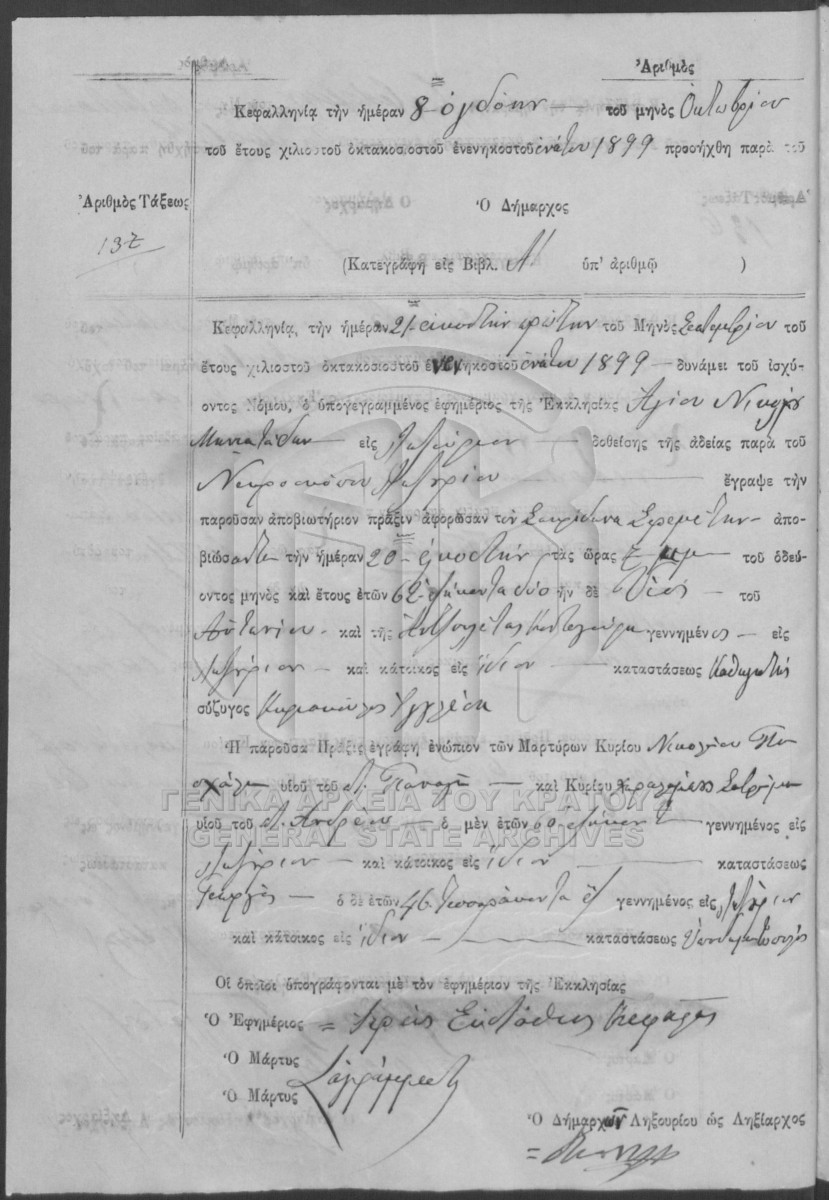 Ἀριθμὸς
Κεφαλληνίᾳ τὴν ἡμέραν 8 ὀγδόην τοῦ μηνὸς Ὀκτωβρίου
τοῦ ἔτους χιλιοστοῦ ὀκτακοσιοστοῦ ἐνενηκοστοῦ ἐνάτου 1899 προσήχθη παρὰ τοῦ
Ἀριθμὸς Τάξεως
Ὁ Δήμαρχος
137
(Κατεγράφη εἰς Βιβλ. Α' ὑπ' ἀριθμῷ )
Κεφαλληνίᾳ, τὴν ἡμέραν 21 εἰκοστὴν πρώτην τοῦ Μηνὸς Σεπτεμβρίου τοῦ
ἔτους χιλιοστοῦ ὀκτακοσιοστοῦ ἐνενηκοστοῦ ἐνάτου 1899 δυνάμει τοῦ ἰσχύ-
οντος Νόμου, ὁ ὑπογεγραμμένος ἐφημέριος τῆς Ἐκκλησίας Ἁγίου Νικολάου
Μηνιατάδων εἰς Ληξούριον δοθείσης τῆς ἀδείας παρὰ τοῦ
Ληξουρίου ἔγραψε τὴν
παροῦσαν ἀποβιωτήριον πρᾶξιν ἀφορῶσαν τὸν Σπυρίδωνα ἀπο-
βιώσαντα τὴν ἡμέραν 20 εἰκοστὴν τὰς ὥρας 7 μμ τοῦ ὁδεύ-
οντος μηνὸς καὶ ἔτους ἐτῶν 62 ἑξήκοντα δύο ἦν δὲ Υἱὸς τοῦ
Ἀντωνίου καὶ τῆς γεννημένος εἰς
Ληξούριον καὶ κάτοικος εἰς ἴδιον καταστάσεως
σύζυγος
Ἡ παροῦσα Πρᾶξις ἐγράφη ἐνώπιον τῶν Μαρτύρων Κυρίου Νικολάου
υἱοῦ τοῦ π. Παναγῆ καὶ Κυρίου Χαραλάμπους
υἱοῦ τοῦ π. Ἀνδρέου ὁ μὲν ἐτῶν 60 ἑξήκοντα γεννημένος εἰς
Ληξούριον καὶ κάτοικος εἰς ἴδιον καταστάσεως
Γεωργὸς ὁ δὲ ἐτῶν 46 τεσσαράκοντα ἓξ γεννημένος εἰς Ληξούριον
καὶ κάτοικος εἰς ἴδιον καταστάσεως Ὑποδηματοποιός
Οἱ ὁποῖοι ὑπογράφονται μὲ τὸν ἐφημέριον τῆς Ἐκκλησίας
Ὁ Ἐφημέριος = Ἱερεὺς Εὐστάθιος
Ὁ Μάρτυς
Ὁ Μάρτυς
ἀγράμματοι
Ὁ Δήμαρχων Ληξουρίου ὡς Ληξίαρχος
ΓΕΝΙΚΑ ΑΡΧΕΙΑ ΤΟΥ ΚΡΑΤΟΥΣ
GENERAL STATE ARCHIVES